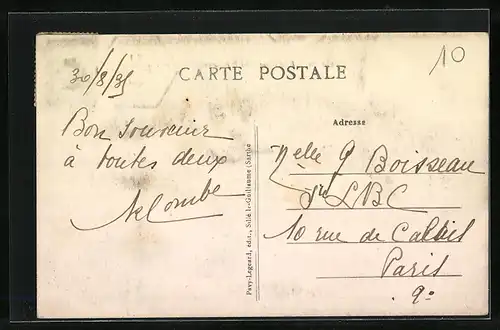 30/8/35
10
CARTE POSTALE
Bon souvenir
à toutes deux
Adresse
Melle G Boisseau
LBC
10 rue de Calais
Paris
9e
Pavy-Legeard, édit., Sillé-le-Guillaume (Sarthe)